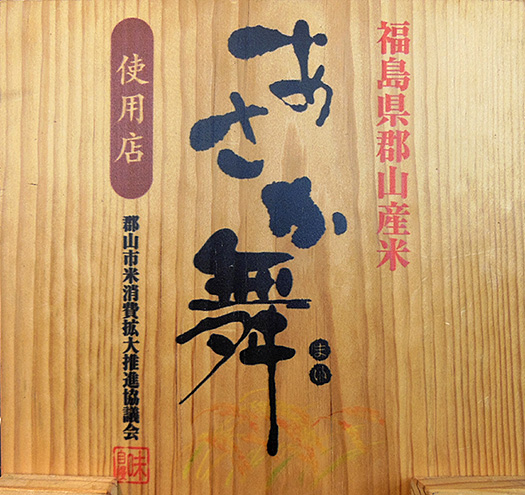 福島県郡山産米
あさか舞
まい
使用店
郡山市米消費拡大推進協議会
味自慢